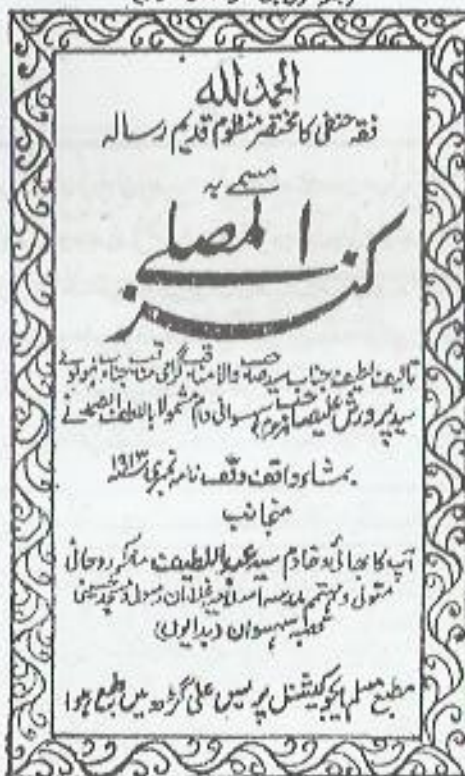 الحمد لله
فقہ حنفی کا مختصر منظوم قدیم رسالہ
مسمے بہ
کنز المصلی
تالیف لطیف جناب سید صاحب والا مناقب گرامی مراتب جناب مولوی
سید پرورش علی صاحب سہسوانی دام مشمولا باللطف
بمنشاء واقف وقف نامہ نمبری ۱۹۱۳
منجانب
آپ کا بھائی و خادم سید عبد اللطیف روحانی
متولی و مہتمم مدرسہ رسول
قصبہ سہسوان (بدایوں)
مطبع مسلم ایجوکیشنل پریس علی گڑھ میں طبع ہوا